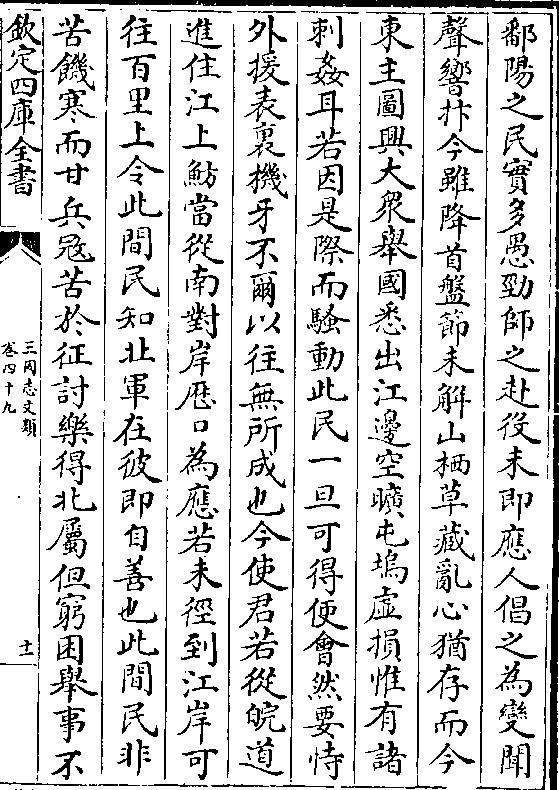 鄱陽之民實多愚勁師之赴役未即應人倡之為變聞
聲響抃今雖降首盤節未解山栖草藏亂心猶存而今
東主圖興大衆舉國悉出江邊空曠屯塢虚損惟有諸
刺姦耳若因是際而騷動此民一旦可得便會然要恃
外援表裏機牙不爾以往無所成也今使君若從皖道
進住江上魴當從南對岸歴口為應若未徑到江岸可
往百里上令此間民知北軍在彼即自善也此間民非
苦饑寒而甘兵冦苦於征討樂得北屬但窮困舉事不
欽定四庫全書
三國志文類
卷四十九
十一